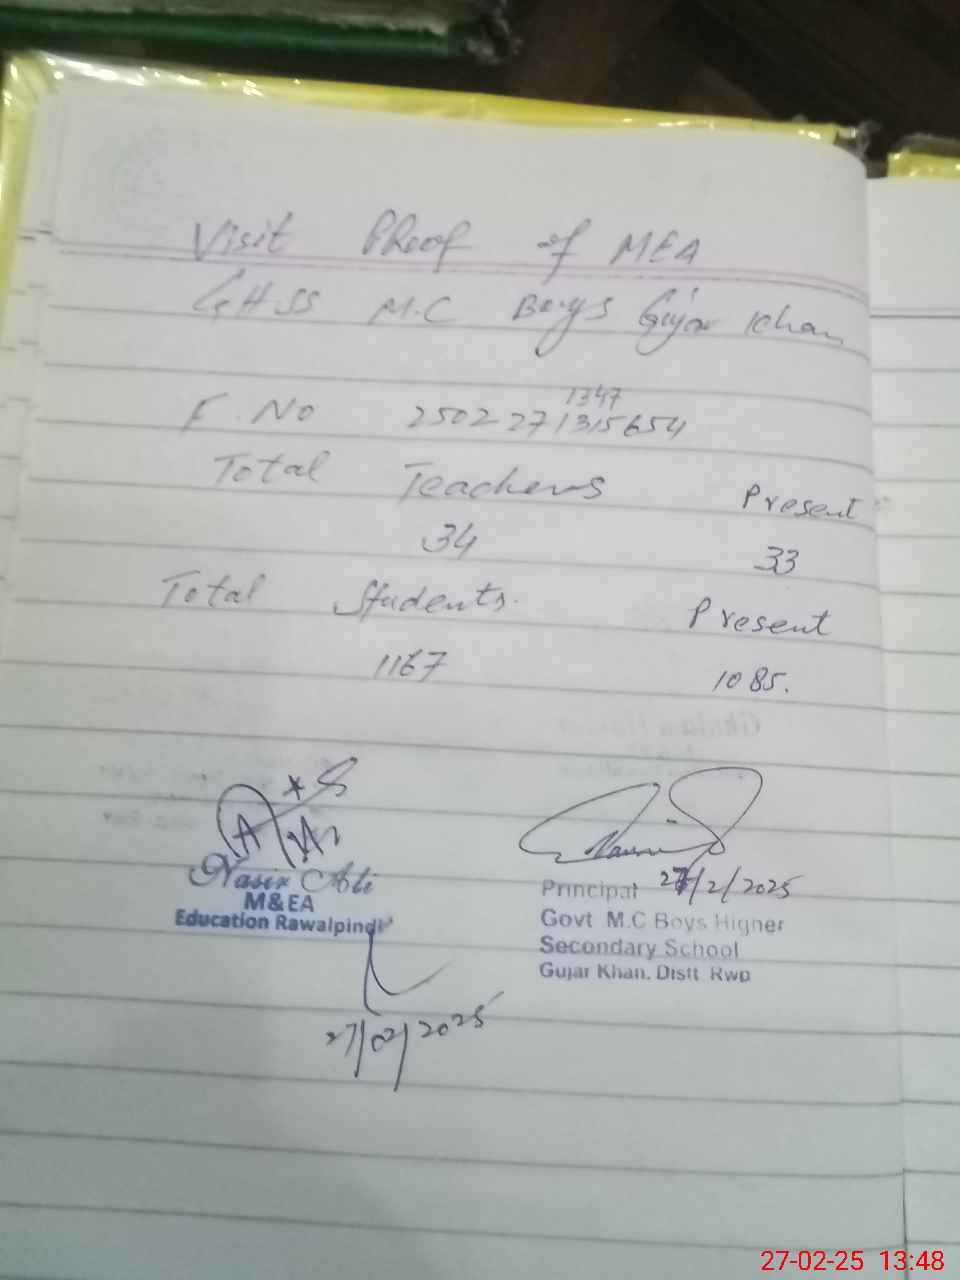 Visit Proof of MEA
GHSS M.C Boys Gujar Khan
1347
F. No 2502271315654
Total Teachers Present
34 33
Total Students. Present
1167 1085.
Nasir Ali
M&EA
Education Rawalpindi
27/02/2025
Principal 27/2/2025
Govt M.C Boys Higher
Secondary School
Gujar Khan. Distt Rwp
27-02-25 13:48